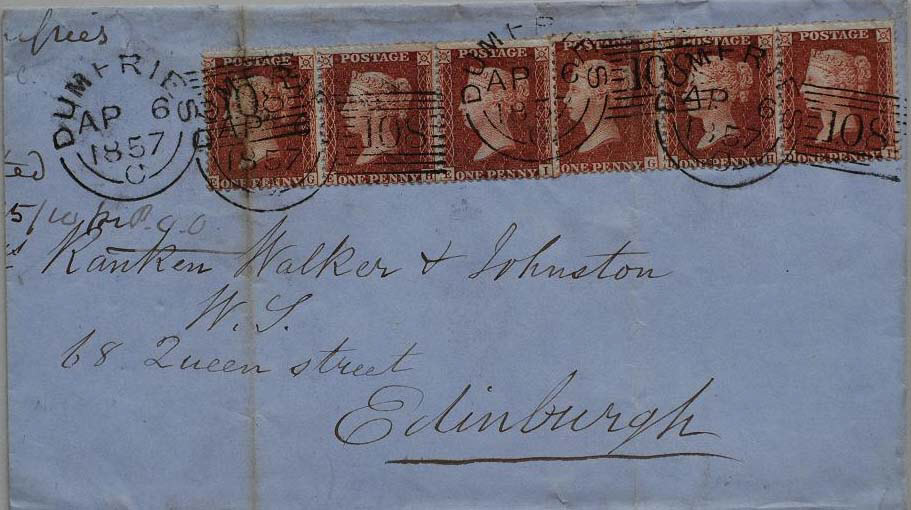 POSTAGE POSTAGE POSTAGE POSTAGE POSTAGE POSTAGE
DUMFRIES
AP 6
1857
C
DUMFRIES
AP 6
1857
108
108
DUMFRIES
AP 6
1857
108
DUMFRIES
AP 6
1857
108
ONE PENNY ONE PENNY ONE PENNY ONE PENNY ONE PENNY ONE PENNY
Ranken Walker & Johnston
W.S.
68 Queen street
Edinburgh